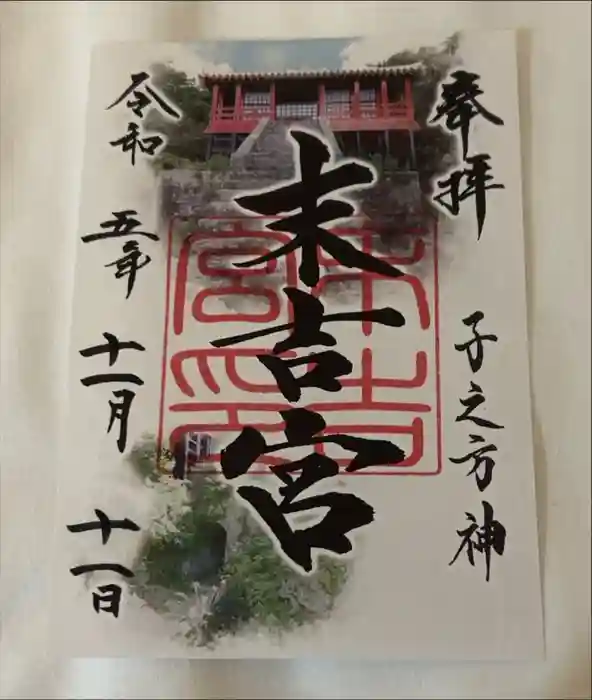 奉拝 子之方神
末吉宮
末吉宮印
令和 五年 十一月 十一日